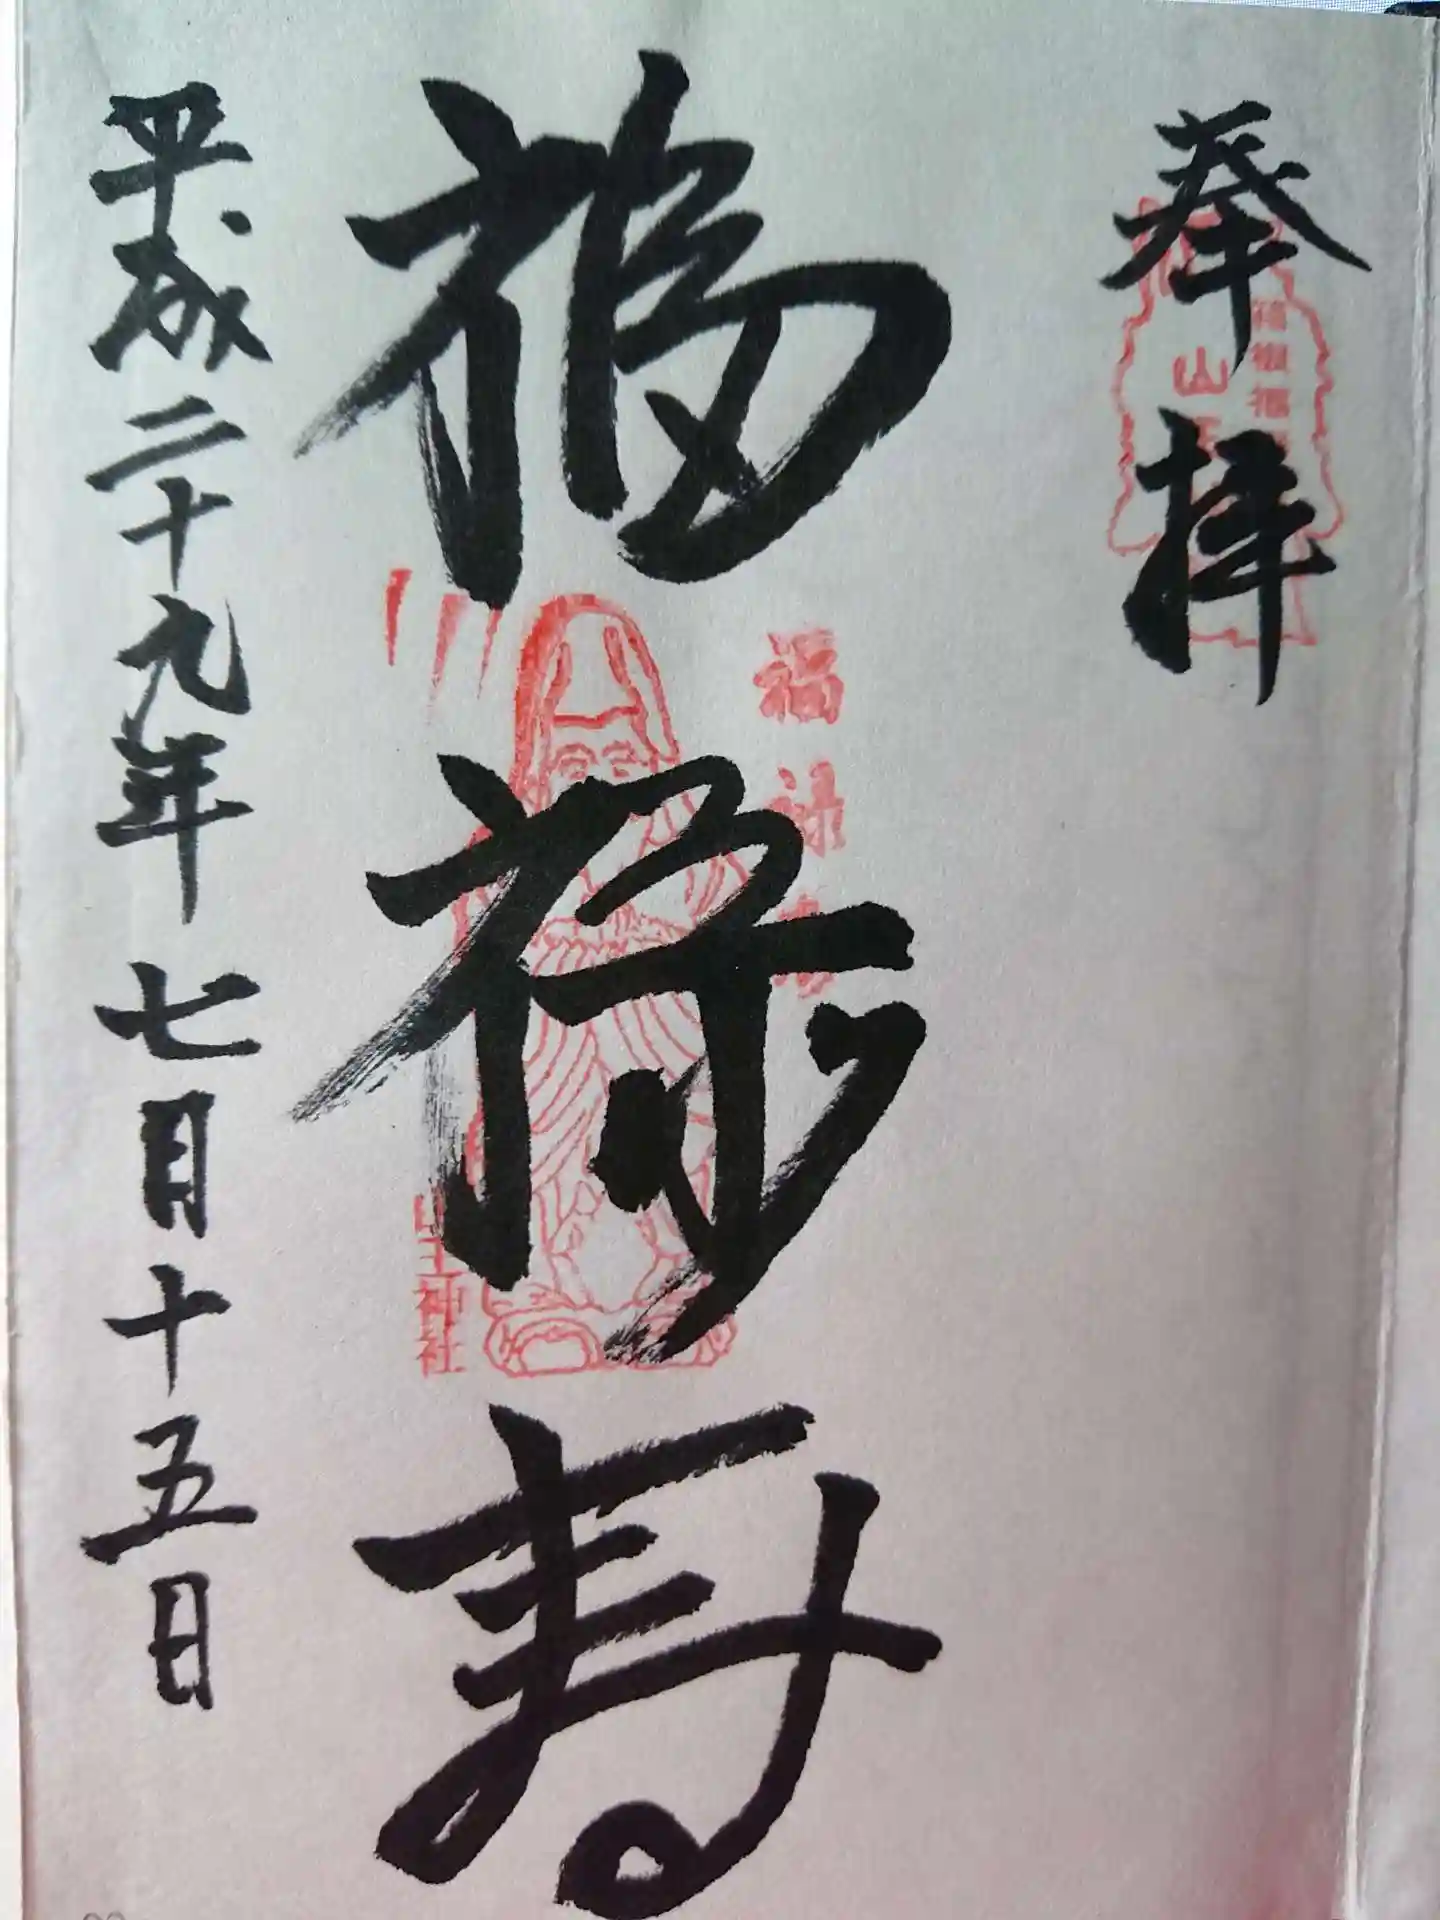 奉拝
福禄寿
福禄寿
山王神社
平成二十九年七月十五日